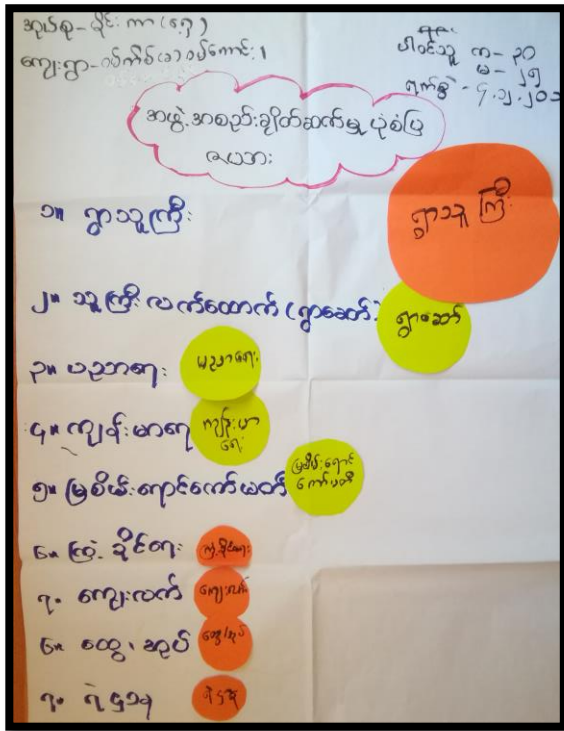 အုပ်စု - မိုင်းကာ (ခ၅)
ကျေးရွာ -
ပါဝင်သူ က - ၃၀
မ - ၂၅
ရက်စွဲ -
အဖွဲ့အစည်းချိတ်ဆက်မှုပုံစံပြ
ဇယား
၁။ ရွာသူကြီး
ရွာသူကြီး
၂။ သူကြီးလက်ထောက် (ရွာဆော်)
ရွာဆော်
၃။ ပညာရေး
ပညာရေး
၄။ ကျန်းမာရေ
ကျန်းမာ
ရေး
၅။ မြစိမ်းရောင်ကော်မတီ
မြစိမ်းရောင်
ကော်မတီ
၆။ ကြံ့ခိုင်ရေး
ကြံ့ခိုင်ရေး
၇။ ကျေးလက်
ကျေးလက်
၆။ ထွေ၊ အုပ်
ထွေ/အုပ်
၇။ ရဲဌာန
ရဲဌာန